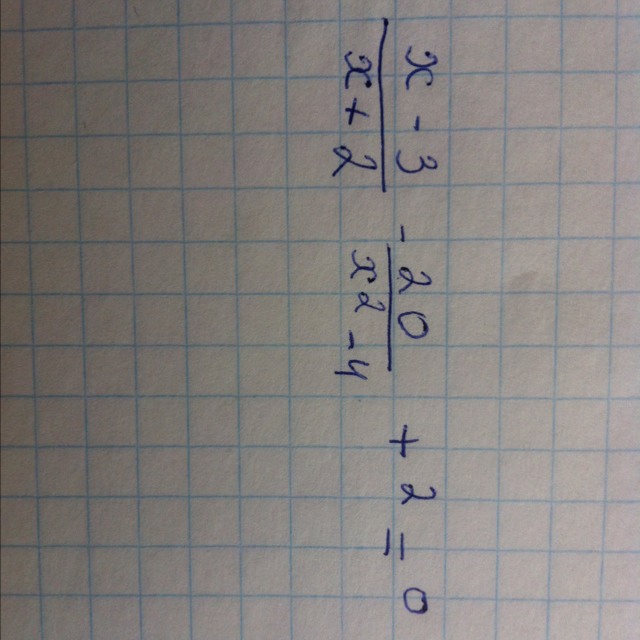 x - 3 / x + 2 - 20 / x² - 4 + 2 = 0